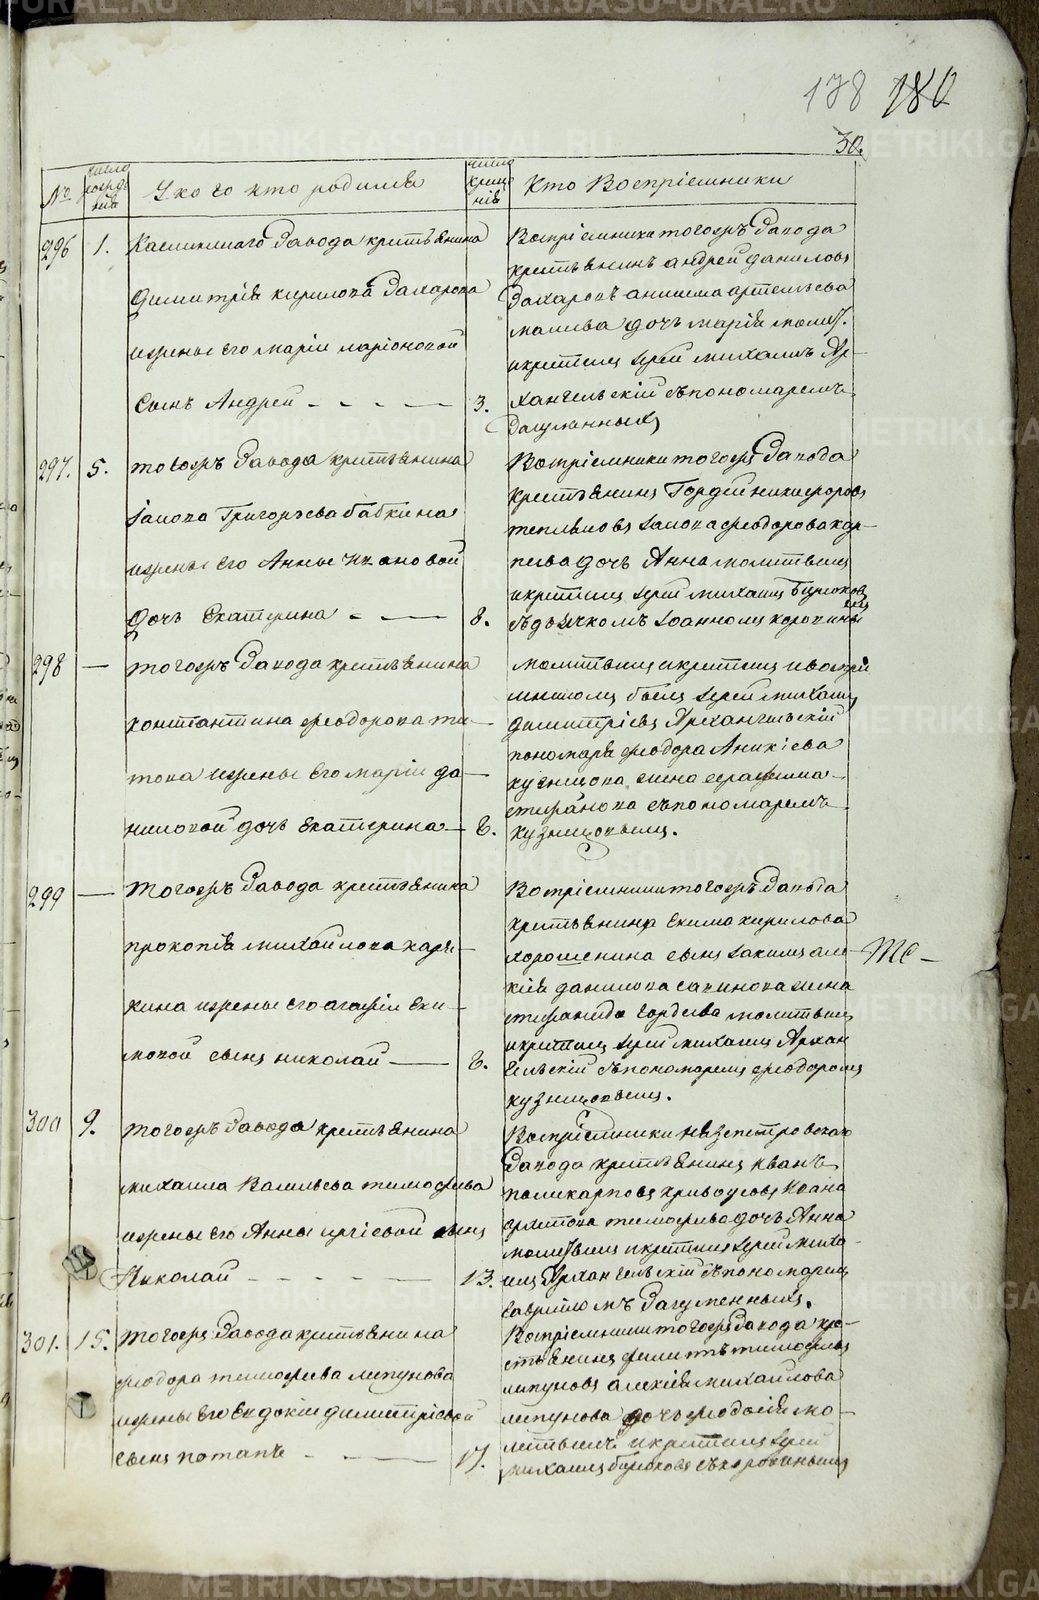 178 180
30.
№
число рожде нія
У кого кто родился
число креще нія
Кто Воспріемники
296
1.
Каслинскаго Завода крестьянина
Димитрія кирилова Захарова
и жены Его маріи ларіоновой
Сынъ Андрей
3.
Воспріемники тогожъ Завода
крестьянинъ андрей даниловъ
Захаровъ
дочь марія молит.
и крестилъ Іерей михаилъ Ар-
хангельскій съ пономаремъ
Загуменныхъ
297.
5.
тогожъ Завода крестьянина
іакова Григорьева бабкина
и жены Его Анны Ивановой
дочь Екатерина
8.
Воспріемники тогожъ Завода
крестьянинъ Гордей никифоровъ
іакова феодорова кар-
пова дочь Анна молитвилъ
и крестилъ Іерей михаилъ Бирюковъ
съ дьячкомъ Іоанномъ корочинымъ
298
тогожъ Завода крестьянина
константина феодорова ти-
това и жены Его маріи да-
ниловой дочь Екатерина
8.
молитвилъ и крестилъ и воспрі
емникомъ былъ Іерей михаилъ
димитріевъ Архангельскій
пономаря феодора Аникіева
кузнецова жена серафима
стефанова съ пономаремъ
кузнецовымъ.
299
тогожъ Завода крестьянина
прокопія михайлова каря-
кина и жены его агафіи Еки-
мовой сынъ николай
8.
Воспріемники тогожъ Завода
крестьянина Екима кирилова
хорошенина сынъ іакимъ але-
ксія данилова савинова жена
стефанида Гордеева молитвилъ
и крестилъ Іерей михаилъ Архан
гельскій съ пономаремъ феодоромъ
кузнецовымъ.
300
9.
тогожъ Завода крестьянина
михаила Васильева тимофеева
и жены его Анны сынъ
Николай
13.
Воспріемники Нязепетровскаго
Завода крестьянинъ иванъ
поликарповъ кривоусовъ Ивана
архипова тимофеева дочь Анна
молитвилъ и крестилъ Іерей миха-
илъ Архангельскій съ пономаремъ
гавриломъ Загуменныхъ.
301.
15.
тогожъ Завода крестьянина
феодора тимофеева липунова
и жены Его Евдокіи димитріевой
сынъ потапъ
17.
Воспріемники тогожъ Завода кре-
стьянинъ филиппъ тимофеевъ
липуновъ алексія михайлова
липунова дочь феодосія мо-
литвилъ и крестилъ Іерей
михаилъ бирюковъ съ корочинымъ
METRIKI.GASO-URAL.RU